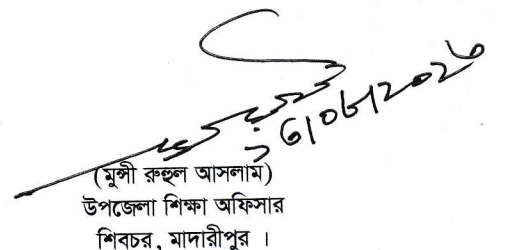 (মুন্সী রুহুল আসলাম)
উপজেলা শিক্ষা অফিসার
শিবচর, মাদারীপুর ।